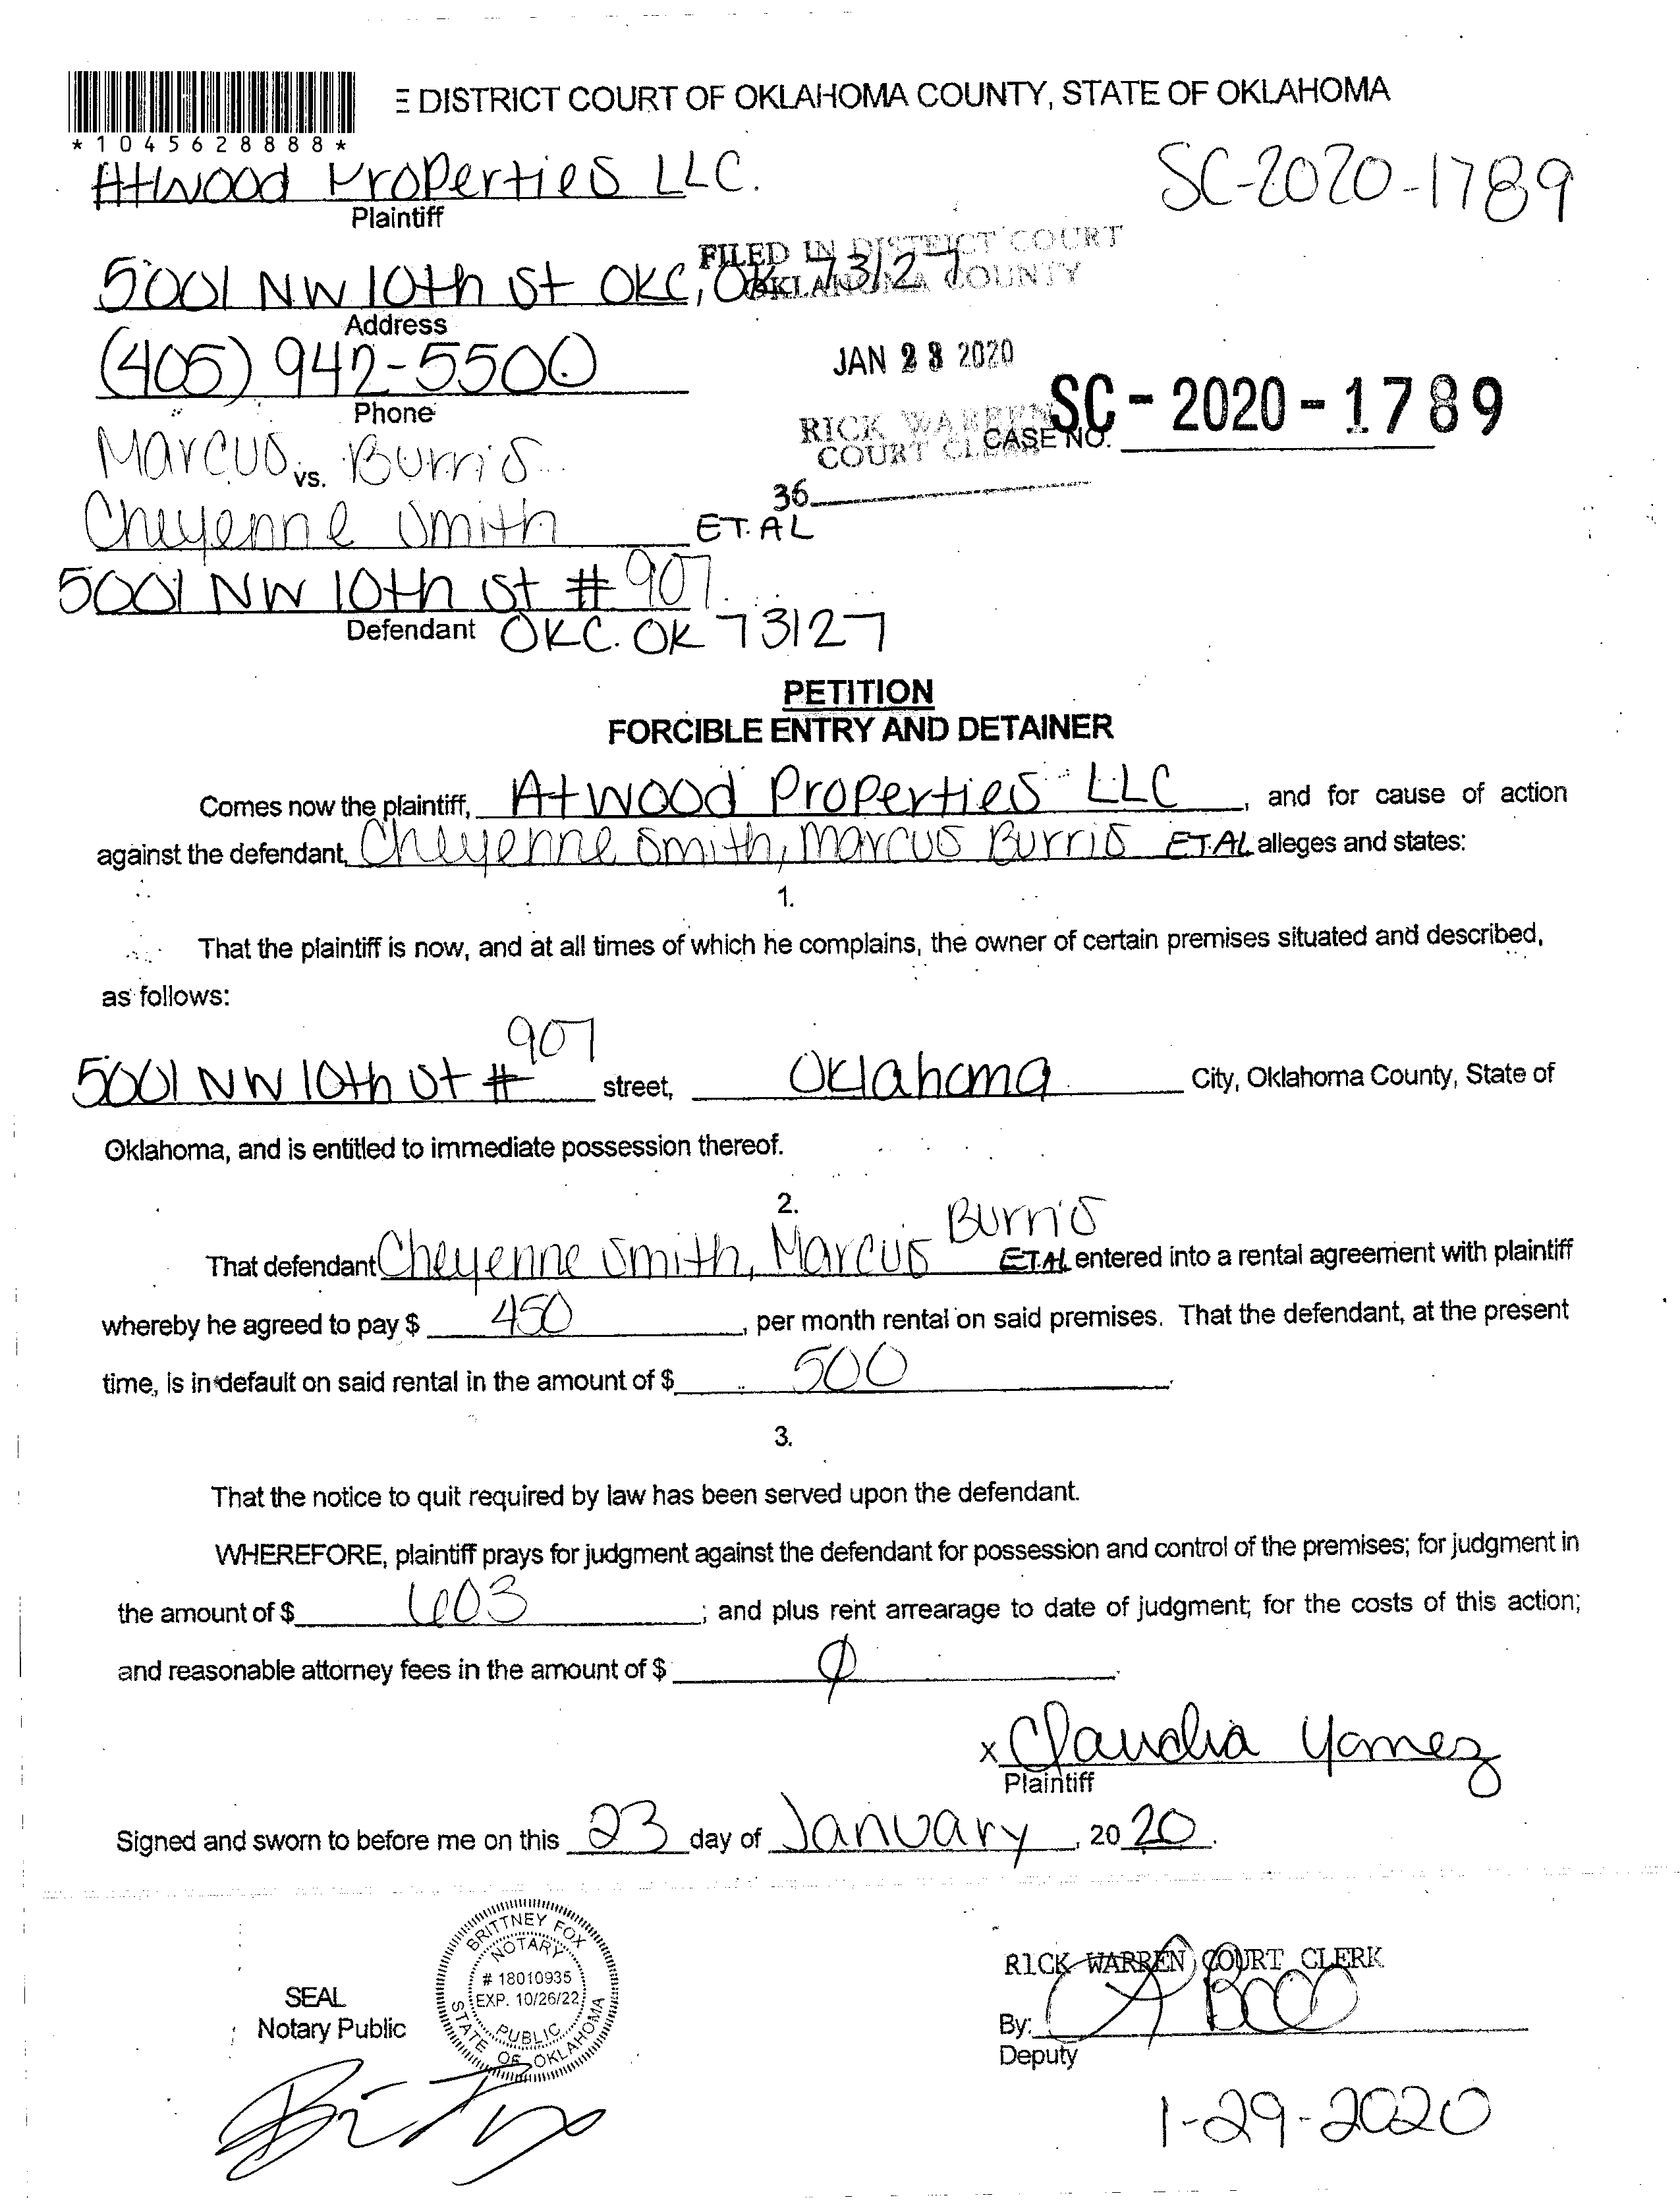 E DISTRICT COURT OF OKLAHOMA COUNTY, STATE OF OKLAHOMA
*1045628888*
Atwood Properties LLC.
SC-2020-1789
Plaintiff
FILED IN DISTRICT COURT
OKLAHOMA COUNTY
5001 NW 10th St OKC, OK 73127
Address
(405) 942-5500
JAN 23 2020
Phone
RICK WARREN
COURT CLERK
SC-2020-1789
CASE NO.
Marcus Burris
vs.
36
Cheyenne Smith ET.AL
5001 NW 10th St # 907
Defendant OKC. OK 73127
PETITION
FORCIBLE ENTRY AND DETAINER
Comes now the plaintiff, Atwood Properties LLC, and for cause of action
against the defendant, Cheyenne Smith, Marcus Burris ET.AL alleges and states:
1.
That the plaintiff is now, and at all times of which he complains, the owner of certain premises situated and described,
as follows:
907
5001 NW 10th St # street, Oklahoma City, Oklahoma County, State of
Oklahoma, and is entitled to immediate possession thereof.
2.
Burris
That defendant Cheyenne Smith, Marcus ET.AL entered into a rental agreement with plaintiff
whereby he agreed to pay $ 450, per month rental on said premises. That the defendant, at the present
time, is in default on said rental in the amount of $ 500.
3.
That the notice to quit required by law has been served upon the defendant.
WHEREFORE, plaintiff prays for judgment against the defendant for possession and control of the premises; for judgment in
the amount of $ 603; and plus rent arrearage to date of judgment; for the costs of this action;
and reasonable attorney fees in the amount of $ Ø.
x Claudia Yamez
Plaintiff
Signed and sworn to before me on this 23 day of January, 2020.
BRITTNEY FOX
NOTARY
# 18010935
EXP. 10/26/22
PUBLIC
STATE OF OKLAHOMA
SEAL
Notary Public
RICK WARREN COURT CLERK
By:
Deputy
1-29-2020